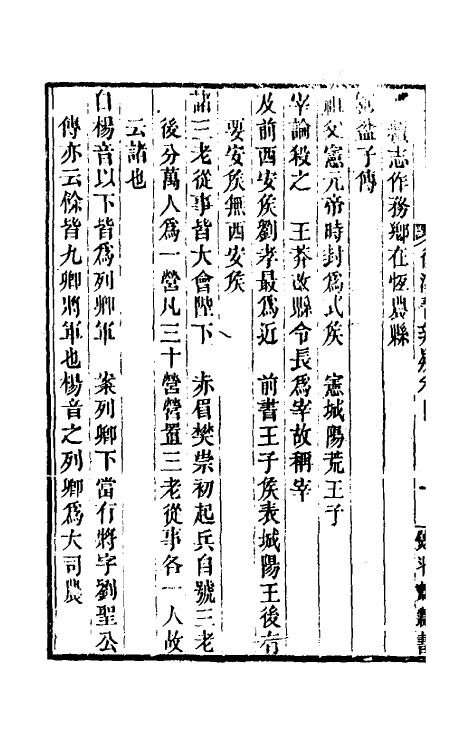 續志作務鄉在恆農縣
盆子傳
祖父憲元帝時封爲式矦　憲城陽荒王子
宰論殺之　王莽改縣令長爲宰故稱宰
及前西安矦劉孝最爲近　前書王子矦表城陽王後有
要安矦無西安矦
諸三老從事皆大會陛下　赤眉樊崇初起兵自號三老
後分萬人爲一營凡三十營營置三老從事各一人故
云諸也
自楊音以下皆爲列卿軍　案列卿下當有將字劉聖公
傳亦云餘皆九卿將軍也楊音之列卿爲大司農